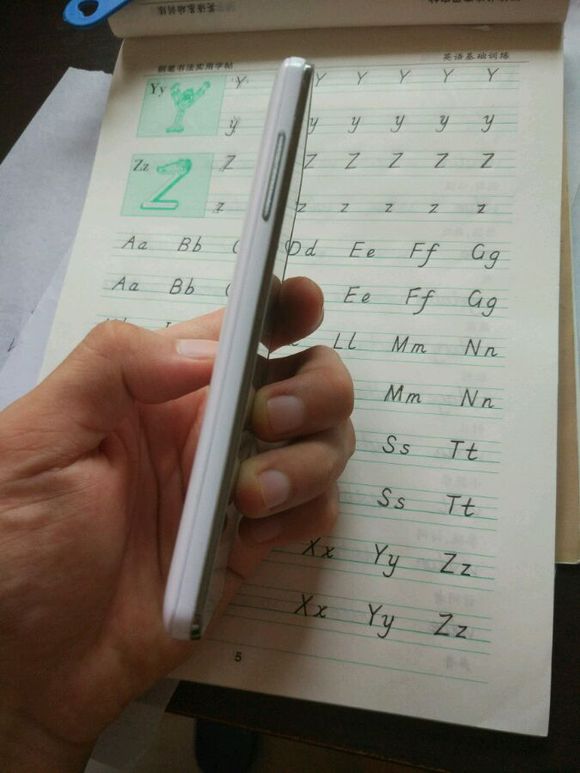 钢笔书法实用字帖 英语基础训练
Yy Y Y Y Y Y Y
y y y y y y
Zz Z Z Z Z Z Z
z z z z z z
Aa Bb Dd Ee Ff Gg
Aa Bb Ee Ff Gg
Ll Mm Nn
Mm Nn
Ss Tt
Ss Tt
Xx Yy Zz
Xx Yy Zz
5